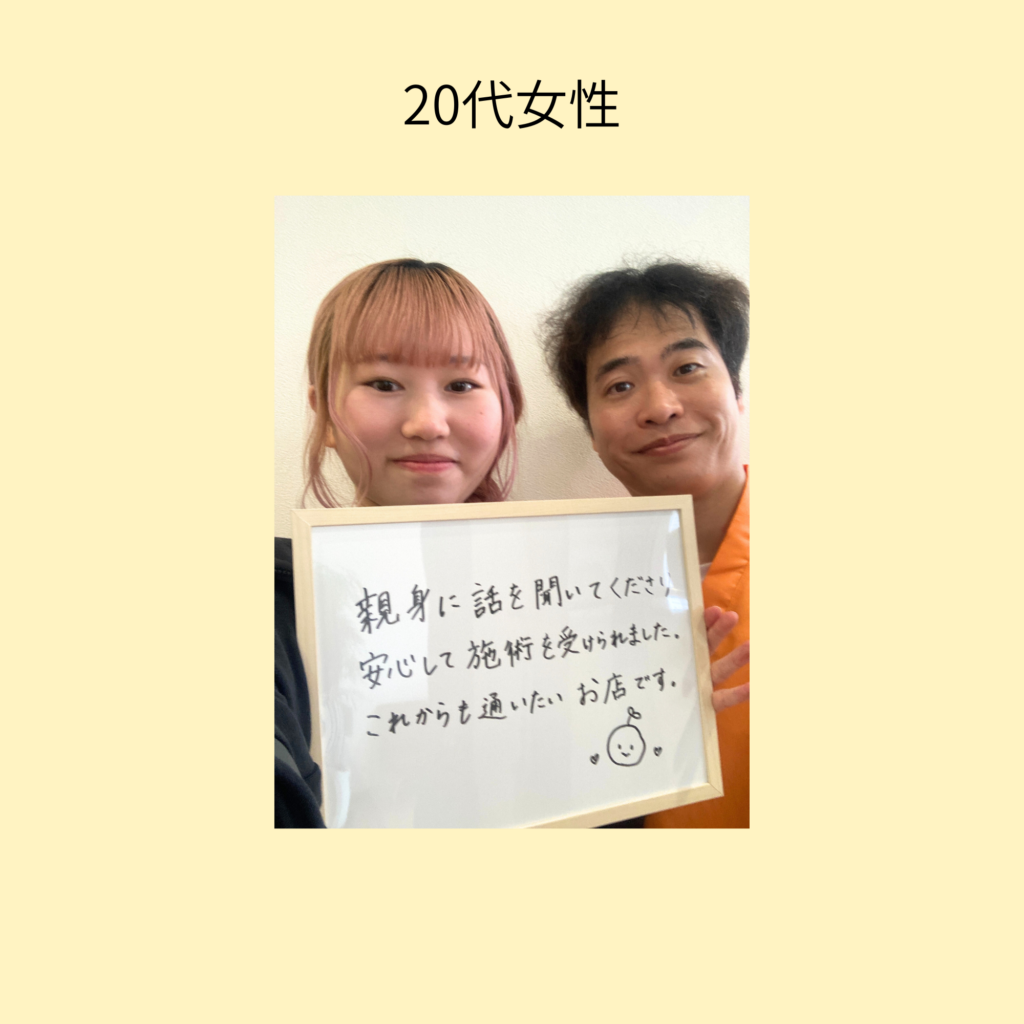 20代女性
親身に話を聞いてくださり
安心して施術を受けられました。
これからも通いたいお店です。